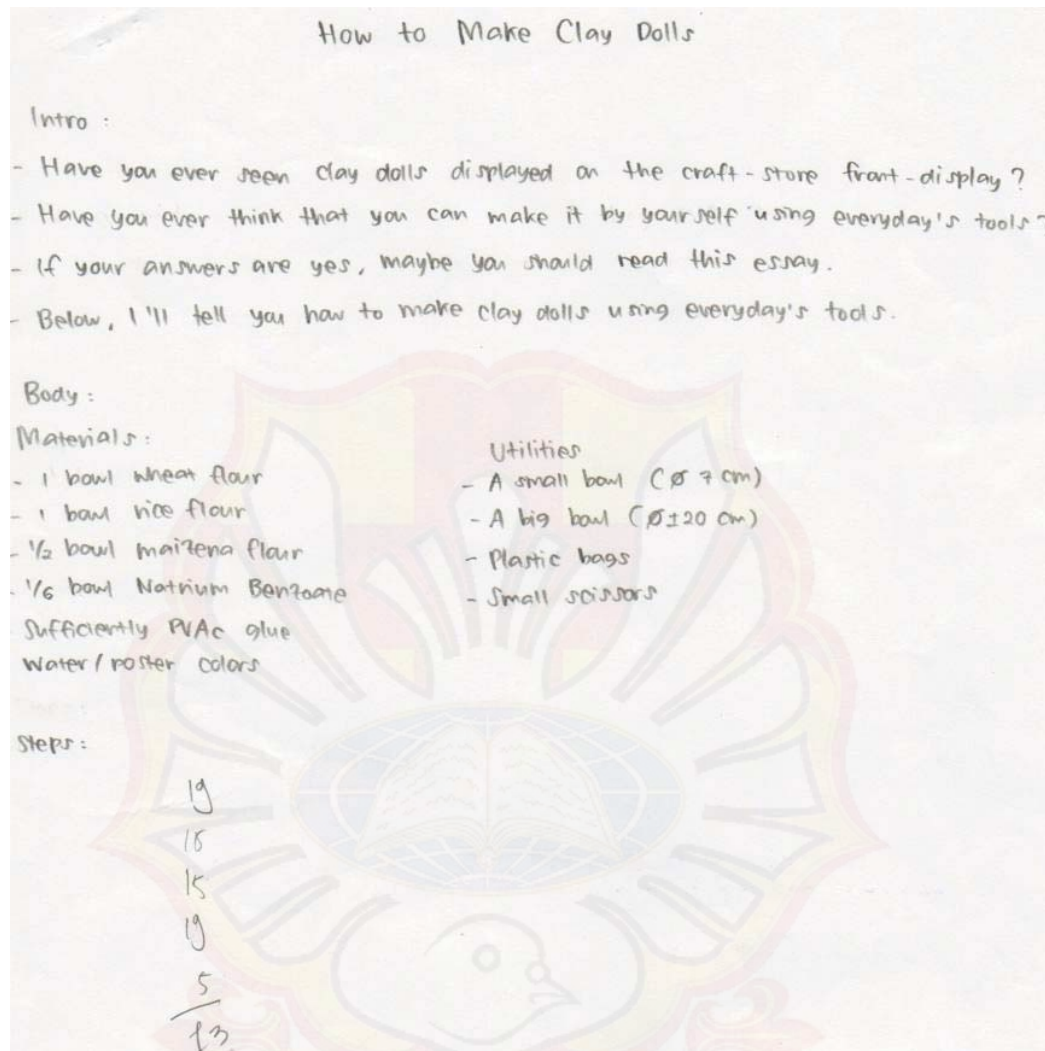 How to Make Clay Dolls
Intro :
- Have you ever seen clay dolls displayed on the craft-store front-display ?
- Have you ever think that you can make it by yourself using everyday's tools?
- If your answers are yes, maybe you should read this essay.
- Below, I'll tell you how to make clay dolls using everyday's tools.
Body :
Materials :
- 1 bowl wheat flour
- 1 bowl rice flour
- 1/2 bowl maizena flour
- 1/6 bowl Natrium Benzoate
Sufficiently PVAc glue
Water / poster colors
Utilities
- A small bowl (Ø 7 cm)
- A big bowl (Ø ± 20 cm)
- Plastic bags
- Small scissors
Steps :
19
15
19
5